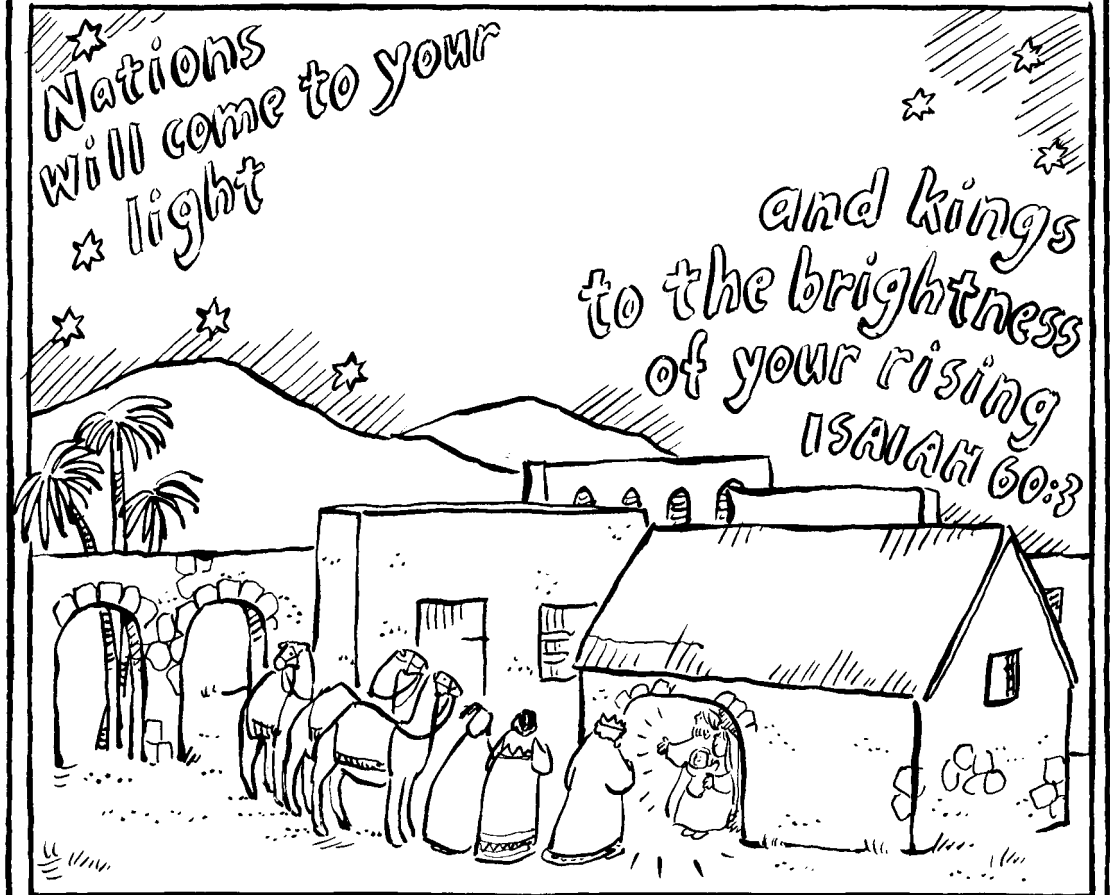 Nations
will come to your
light
and kings
to the brightness
of your rising
ISAIAH 60:3